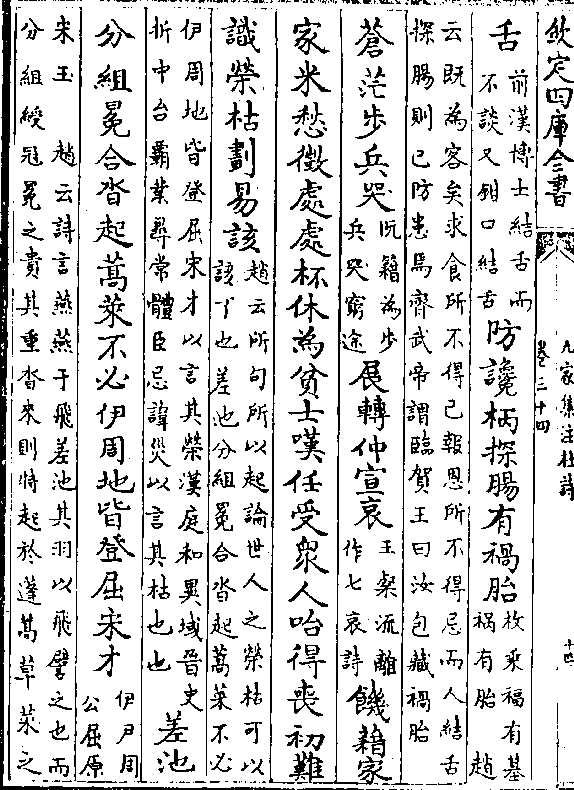 欽定四庫全書
九家集注杜詩
卷三十四
十四
舌
前漢博士結舌而
不談又鉗口結舌
防讒柄探腸有禍胎
枚乘福有基
禍有胎 趙
云既為客矣求食所不得已報恩所不得忌而人結舌
探腸則已防患焉齊武帝謂臨賀王曰汝包藏禍胎
蒼茫步兵哭
阮籍為步
兵哭窮途
展轉仲宣哀
王粲流離
作七哀詩
饑藉家
家米愁徵處處杯休為貧士嘆任受衆人咍得喪初難
識榮枯劃易該
趙云所句所以起論世人之榮枯可以
該了也 差池分組冕合沓起蒿萊不必
伊周地皆登屈宋才以言其榮漢庭和異域晉史
折中台霸業尋常體臣忌諱災以言其枯也也
差池
分組冕合沓起蒿萊不必伊周地皆登屈宋才
伊尹周
公屈原
宋玉 趙云詩言燕燕于飛差池其羽以飛譬之也而
分組綬冠冕之貴其重沓來則將起於蓬蒿草萊之